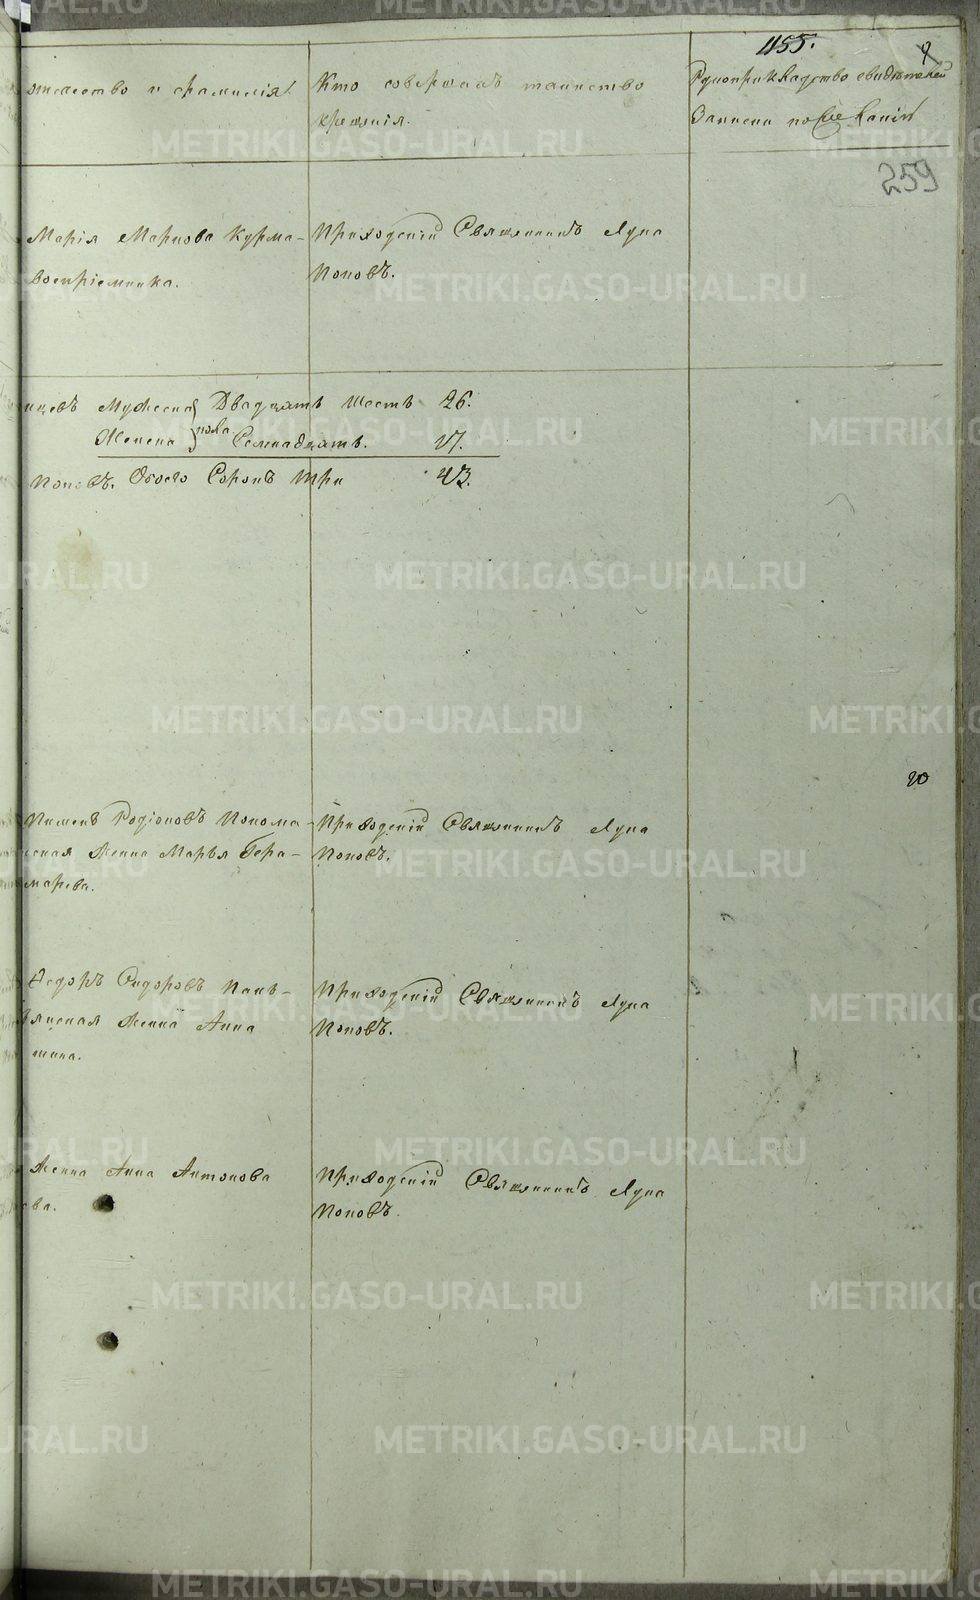 1155.
9
отчество и фамилія
Кто совершалъ таинство
крещенія.
Рукоприкладство свидѣтелей
Записи по желанію
259
Марія Маркова Курма-
воспріемника.
Приходскій Священникъ Лука
Поповъ.
Мужеска Двадцать шесть 26.
Женска пола Семнадцать. 17.
Поповъ. Обоего Сорокъ три 43.
20
Пименъ Родіоновъ Понома-
ская жена Марья Гера-
марева.
Приходскій Священникъ Лука
Поповъ.
Ѳедоръ Сидоровъ Пань-
янская жена Анна
шина.
Приходскій Священникъ Лука
Поповъ.
жена Анна Антонова
ва.
Приходскій Священникъ Лука
Поповъ.
METRIKI.GASO-URAL.RU